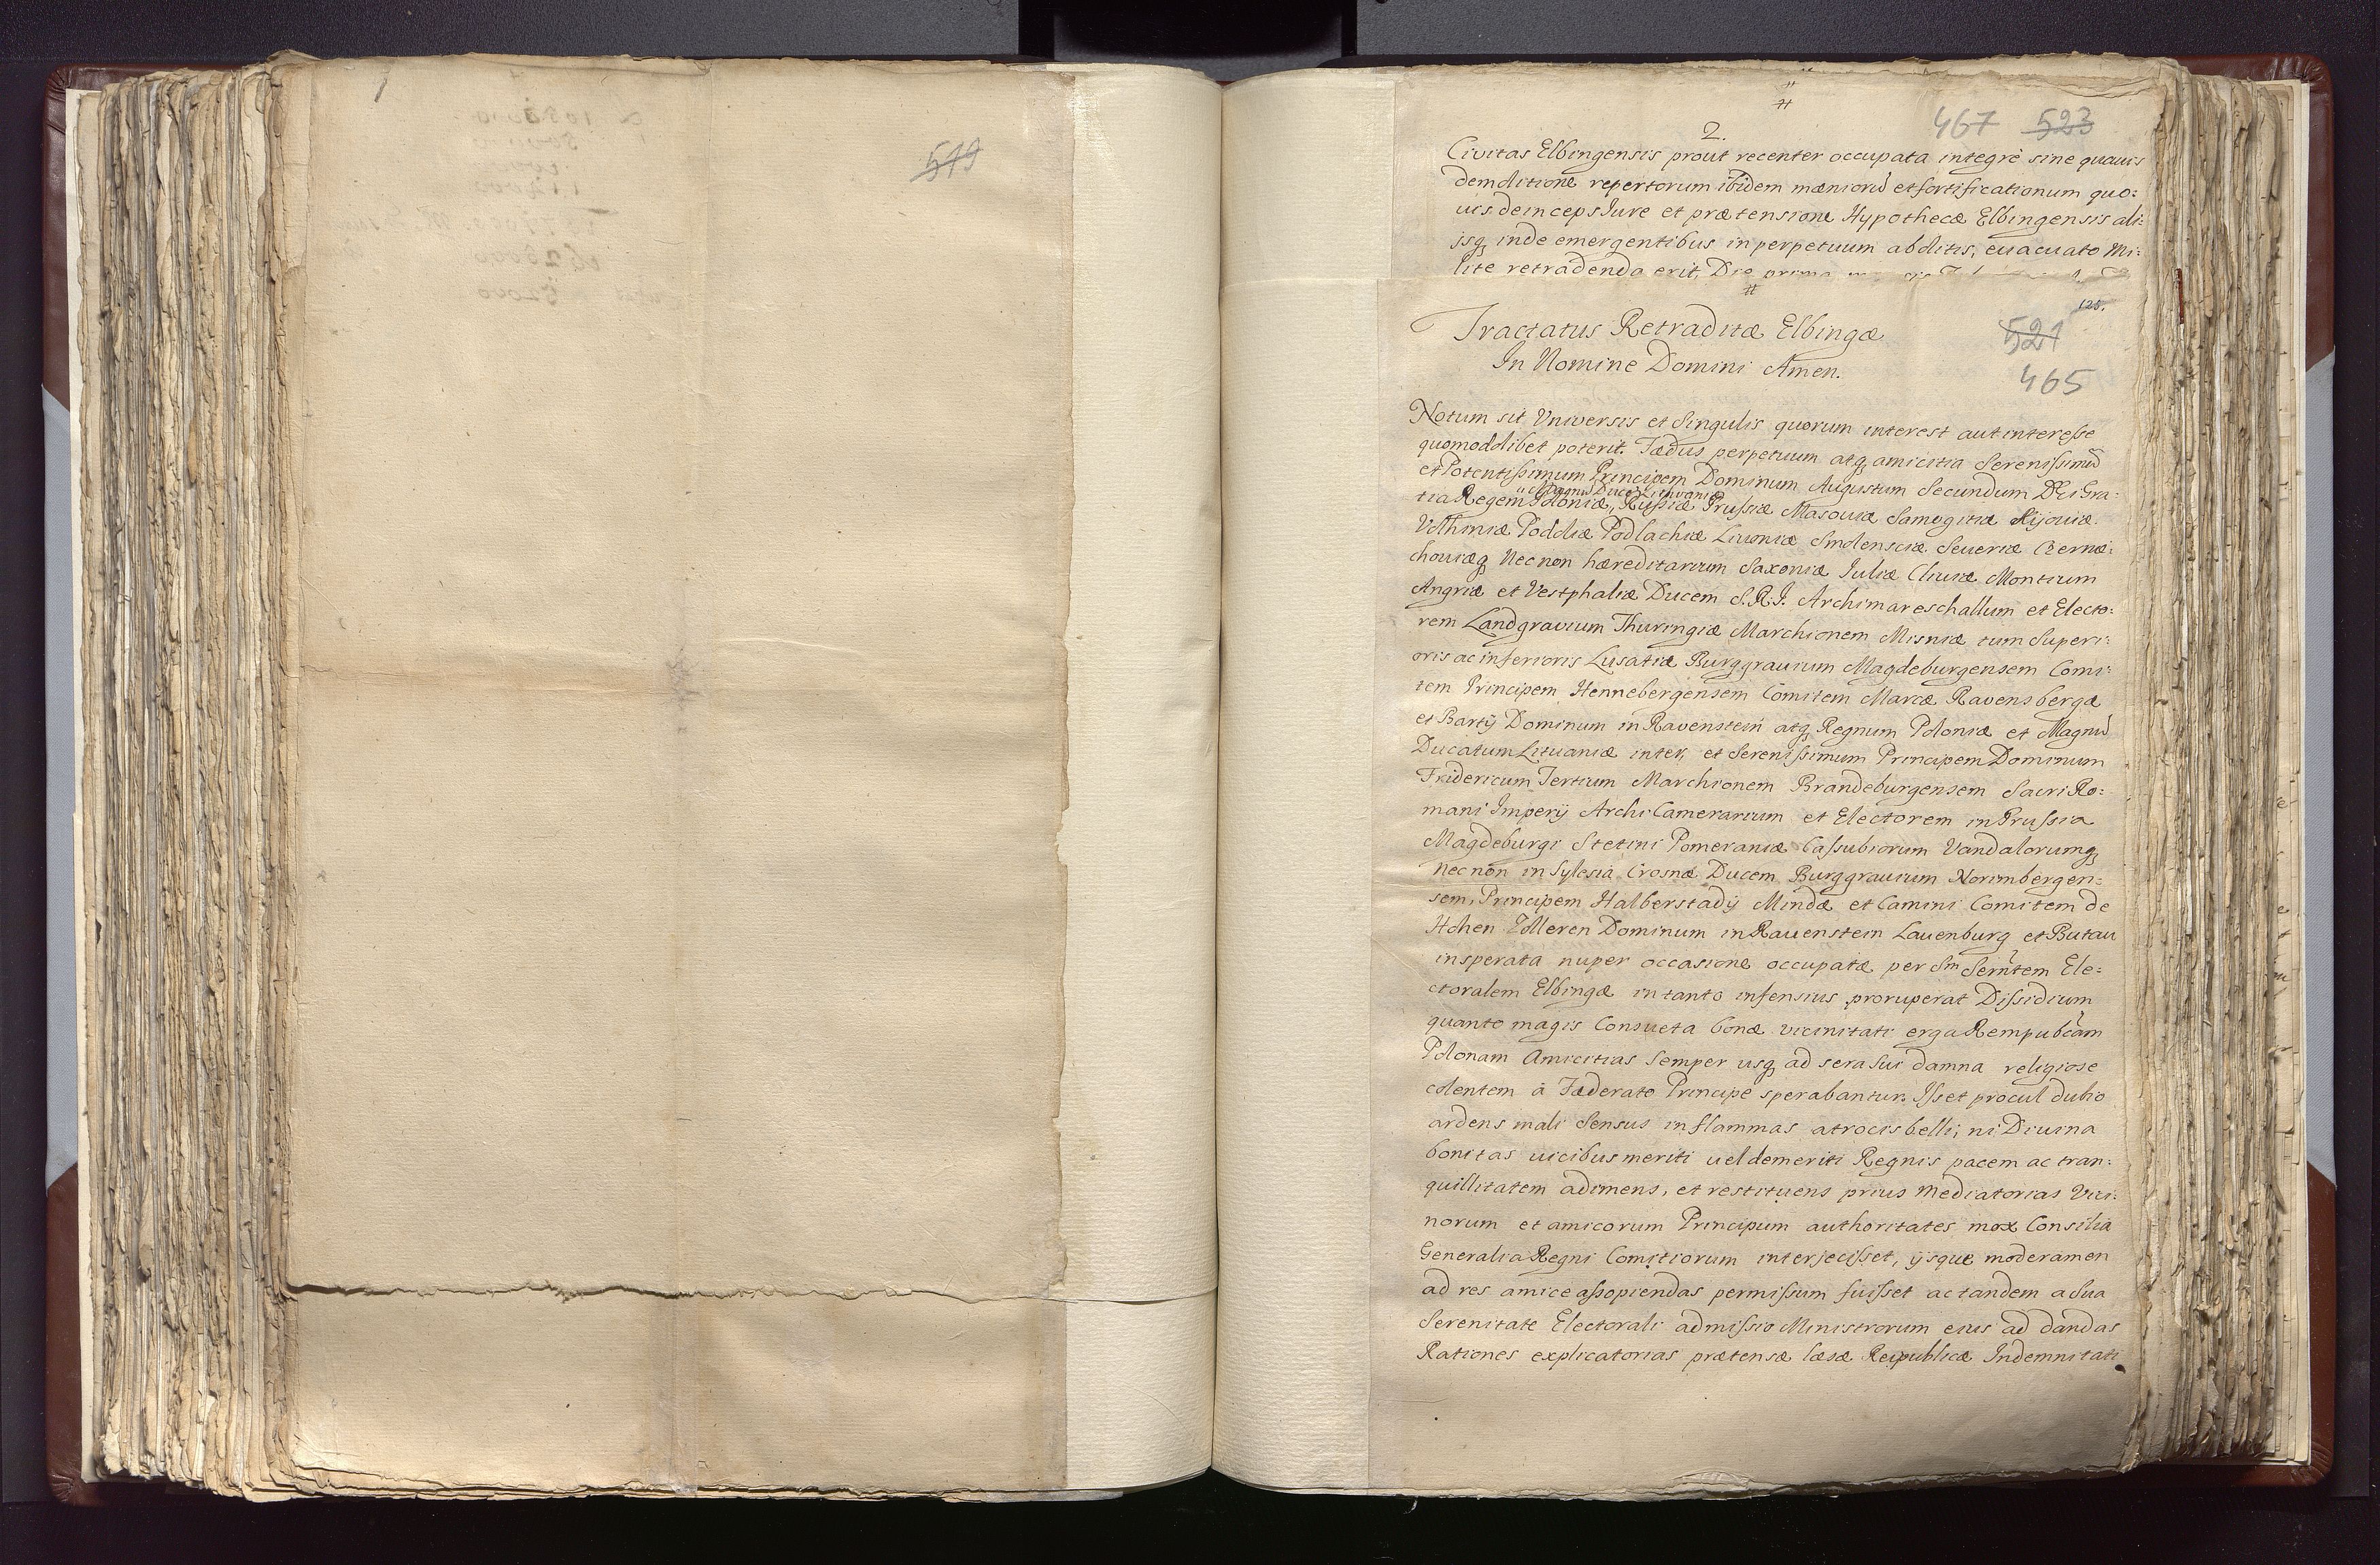 519
467 523
2.
Civitas Elbingensis prout recenter occupata integrè sine quavis
demolitione repertorum ibidem mæniorū et fortificationum quo:
vis deinceps Jure et prætensione Hypothecæ Elbingensis ali:
jsq inde emergentibus in perpetuum abolitis, euacuato Mi:
lite retradenda erit, Die prima
125.
Tractatus Retraditæ Elbingæ
521
In Nomine Domini Amen.
465
Notum sit Vniversis et Singulis quorum interest aut interesse
quomodolibet poterit. Fædus perpetuum atq amicitia Serenissimū
et Potentissimum Principem Dominum Augustum Secundum DEi Gra:
Magnū Ducē Lithuaniæ
tia Regem Poloniæ, Russiæ Prussiæ Masoviæ Samogitiæ Kijoviæ
Volhiniæ Podoliæ Podlachiæ Livoniæ Smolensciæ Severiæ Czerni:
choviæq Nec non hæreditarium Saxoniæ Juliæ Cliviæ Montium
Angriæ et Vestphaliæ Ducem S.R.I. Archimareschallum et Electo:
rem Landgravium Thuringiæ Marchionem Misniæ tum Superi:
oris ac inferioris Lusatiæ Burggravium Magdeburgensem Comi:
tem Principem Hennebergensem Comitem Marcæ Ravensbergæ
et Bartÿ Dominum in Ravenstein atq Regnum Poloniæ et Magnū
Ducatum Lituaniæ inter, et Serenissimum Principem Dominum
Fridericum Tertium Marchionem Brandeburgensem Sacri Ro:
mani Imperÿ ArchiCamerarium et Electorem in Prussia
Magdeburgi Stetini Pomeraniæ Cassubiorum Vandalorumq
Nec non in Sylesia Crosnæ Ducem Burggravium Norimbergen:
sem, Principem Halberstadÿ Mindæ et Camini Comitem de
Hohen Zolleren Dominum in Rauenstein Lauenburg et Butau
insperata nuper occasione occupatæ per Sm Serntem Ele:
ctoralem Elbingæ in tanto infensius proruperat Dissidium
quanto magis Consueta bonæ vicinitati erga Rempubcam
Polonam Amicitias Semper usq ad sera sui damna religiose
colentem à Fæderato Principe sperabantur. Isset procul dubio
ardens mali Sensus in flammas atrocis belli; ni Diuina
bonitas vicibus meriti uel demeriti Regnis pacem ac tran:
quillitatem adimens, et restituens prius Mediatorias Vici:
norum et amicorum Principum authoritates mox Consilia
Generalia Regni Comitiorum interjecisset, ÿsque moderamen
ad res amice assopiendas permissum fuisset ac tandem a Sua
Serenitate Electorali admissio Ministrorum eius ad dandas
Rationes explicatorias prætensæ læsæ Reipublicæ Indemnitati